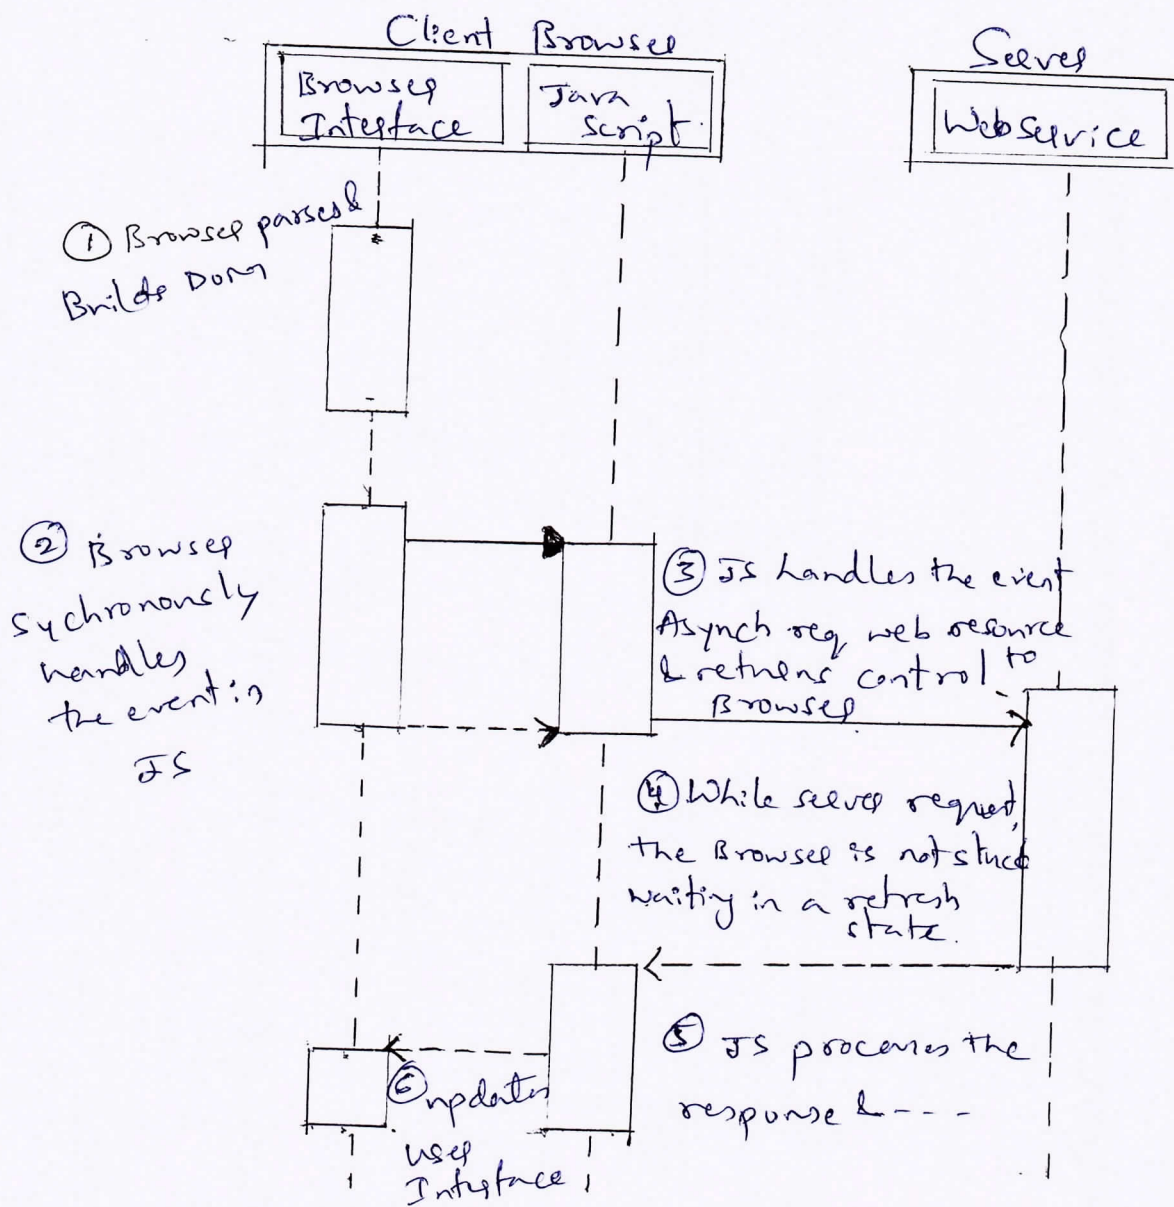 Client Browser
Server
Browser
Interface
Java
Script
Web Service
① Browser parses &
Builds DOM
② Browser
Sychronously
handles
the event in
JS
③ JS handles the event
Asynch req web resource
& returns control to
Browser
④ While server request,
the Browser is not stuck
waiting in a refresh
state.
⑤ JS processes the
response & ----
⑥ updates
user
Interface